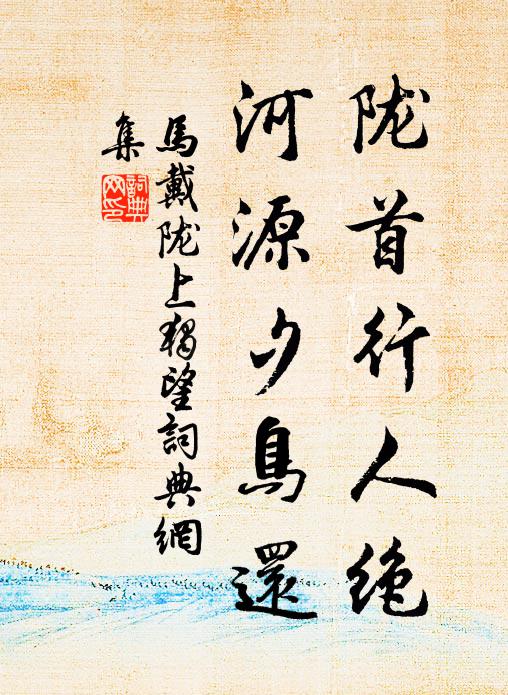 陇首行人绝
河源夕鳥還
馬戴陇上獨望詞典網
集
詞典网印